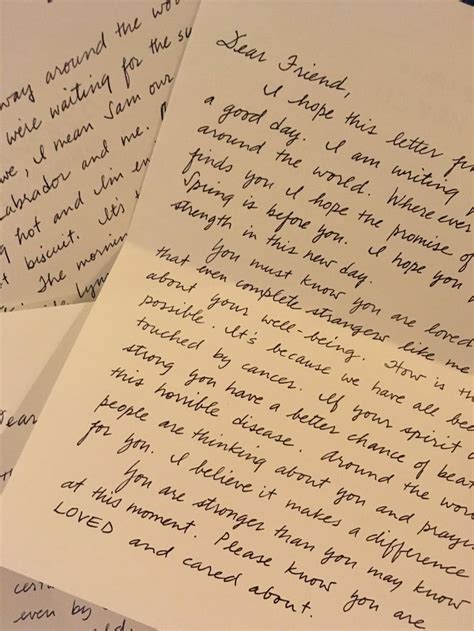 way around the wo
were waiting for the su
we, I mean Sam our
Labrador and me.
g hot and I'm en
t biscuit. It's
The mornin
Dear
even by
Dear Friend,
I hope this letter fin
a good day. I am writing
around the world. Where ever
finds you I hope the promise of
Spring is before you. I hope you
strength in this new day.
You must know you are loved
that even complete strangers like me
about your well-being. How is th
possible. It's because we have all bee
touched by cancer. If your spirit
strong you have a better chance of beat
this horrible disease. Around the wor
people are thinking about you and prayi
for you. I believe it makes a difference
You are stronger than you may know
at this moment. Please know you are
LOVED and cared about.